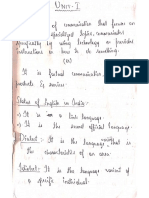 UNIT-I
of communication that focus on
specialized topics, communicates
specifically by using technology or provides
instructions on how to do something.
(or)
It is factual communication,
products & services.
Status of English in India:
→ It is a link language.
→ It is the second official language.
Dialect: It is the language which is
the characteristics of an area.
Idiolect: It is the language variant of
a specific individual.